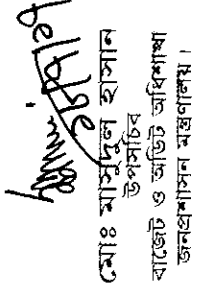 মোঃ মাসুদুল হাসান
উপসচিব
বাজেট ও অডিট অধিশাখা
জনপ্রশাসন মন্ত্রণালয়।